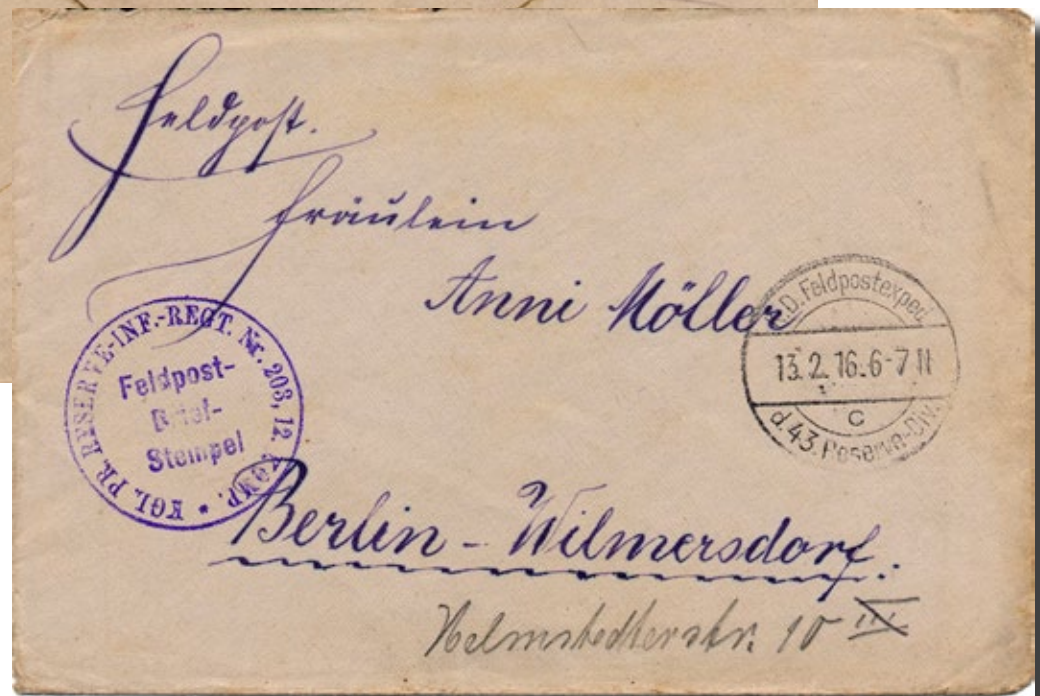 Feldpost.
Fräulein
Anni Möller
K.D. Feldpostexped.
13.2.16.6-7 N
c
d. 43. Reserve-Div.
KGL. PR. RESERVE-INF.-REGT. Nr. 203, 12. KOMP. *
Feldpost-
Brief-
Stempel
Berlin-Wilmersdorf.
Helmstedterstr. 10 III